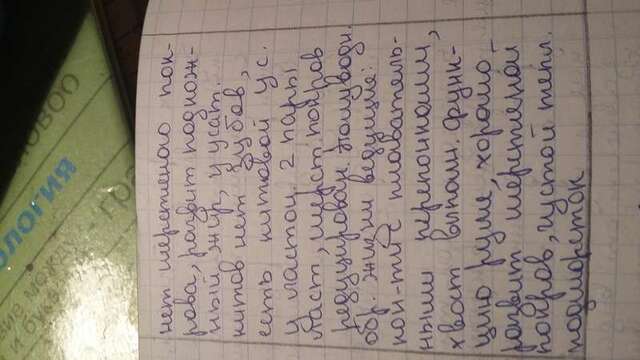 ОЛОГИЯ
нет шерстного пок-
рова, развит подкож-
ный жир, у усат.
китов нет зубов,
есть китовой ус.
у ластон. 2 пары
ласт, шерст. покров
редуцирован. Полуводн.
обр. жизни ведущие:
кон-ти с плаватель-
ными перепонками,
хвост выполн. функ-
цию руля, хорошо
развит шерстной
покров, густой тепл.
подшорсток